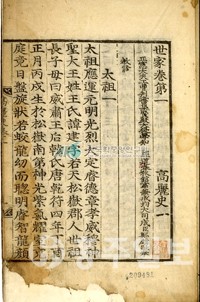 世家卷第一 高麗史一
敎修
太祖一
太祖應運元明光烈大定睿德章孝威穆神
聖大王姓王氏諱建字若天松嶽郡人世祖
長子母曰威肅王后韓氏唐乾符四年丁酉
正月丙戌生於松嶽南第神光紫氣耀室充
庭竟日盤旋狀若蛟龍幼而聰明睿智龍顔